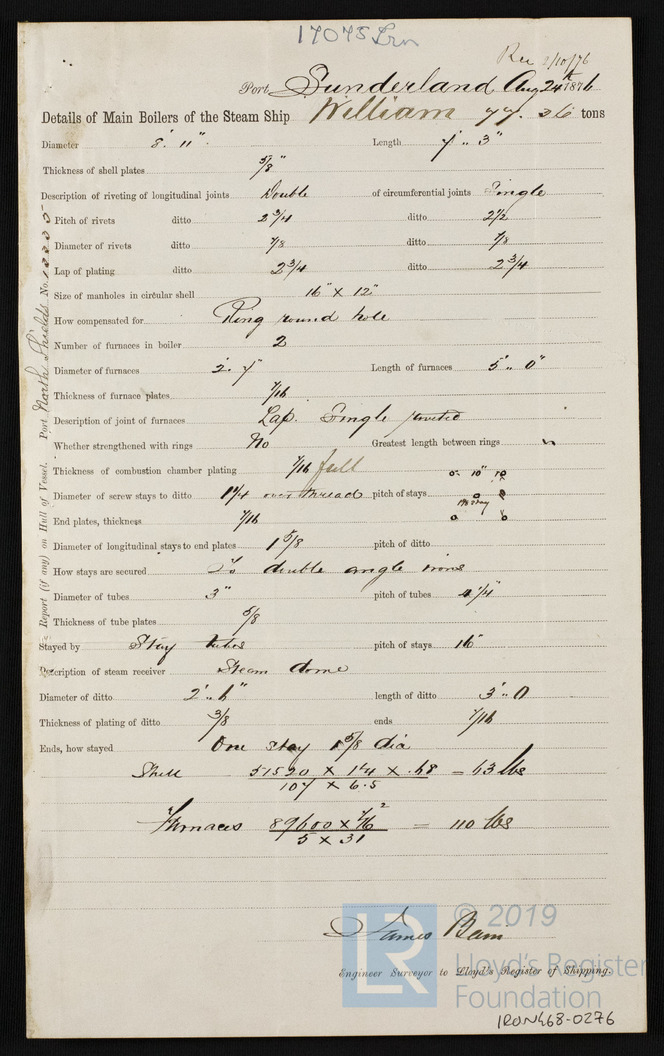 17075 Lrn
Rec 2/10/76
Port Sunderland Aug 24th 1876
Details of Main Boilers of the Steam Ship William 77. 36 tons
Diameter 8' 11" Length 7' 3"
Thickness of shell plates 5/8"
Description of riveting of longitudinal joints Double of circumferential joints Single
Pitch of rivets ditto 2 3/4 ditto 2 1/2
Diameter of rivets ditto 7/8 ditto 7/8
Lap of plating ditto 2 3/4 ditto 2 3/4
Size of manholes in circular shell 16" X 12"
How compensated for Ring round hole
Number of furnaces in boiler 2
Diameter of furnaces 2' 7" Length of furnaces 5' 0"
Thickness of furnace plates 7/16
Description of joint of furnaces Lap. Single riveted
Whether strengthened with rings No Greatest length between rings "
Thickness of combustion chamber plating 7/16 full 10"
Diameter of screw stays to ditto 1 1/4 over thread pitch of stays
End plates, thickness 7/16
Diameter of longitudinal stays to end plates 1 5/8 pitch of ditto
How stays are secured To double angle irons
Diameter of tubes 3" pitch of tubes 4 1/4"
Thickness of tube plates 5/8
Stayed by Stay tubes pitch of stays 16"
Description of steam receiver Steam dome
Diameter of ditto 2' 6" length of ditto 3' 0
Thickness of plating of ditto 3/8 ends 7/16
Ends, how stayed One stay 1 5/8 dia
Shell 51520 X 1 1/4 X .68 = 43 lbs
107 X 6.5
Furnaces 89600 X 7/16 2 = 110 lbs
5 X 31
James Bain
Engineer Surveyor to Lloyd's Register of Shipping.
Report (if any) on Hull of Vessel. Port North Shields No.
LR
© 2019
Lloyd's Register
Foundation
IRON468-0276